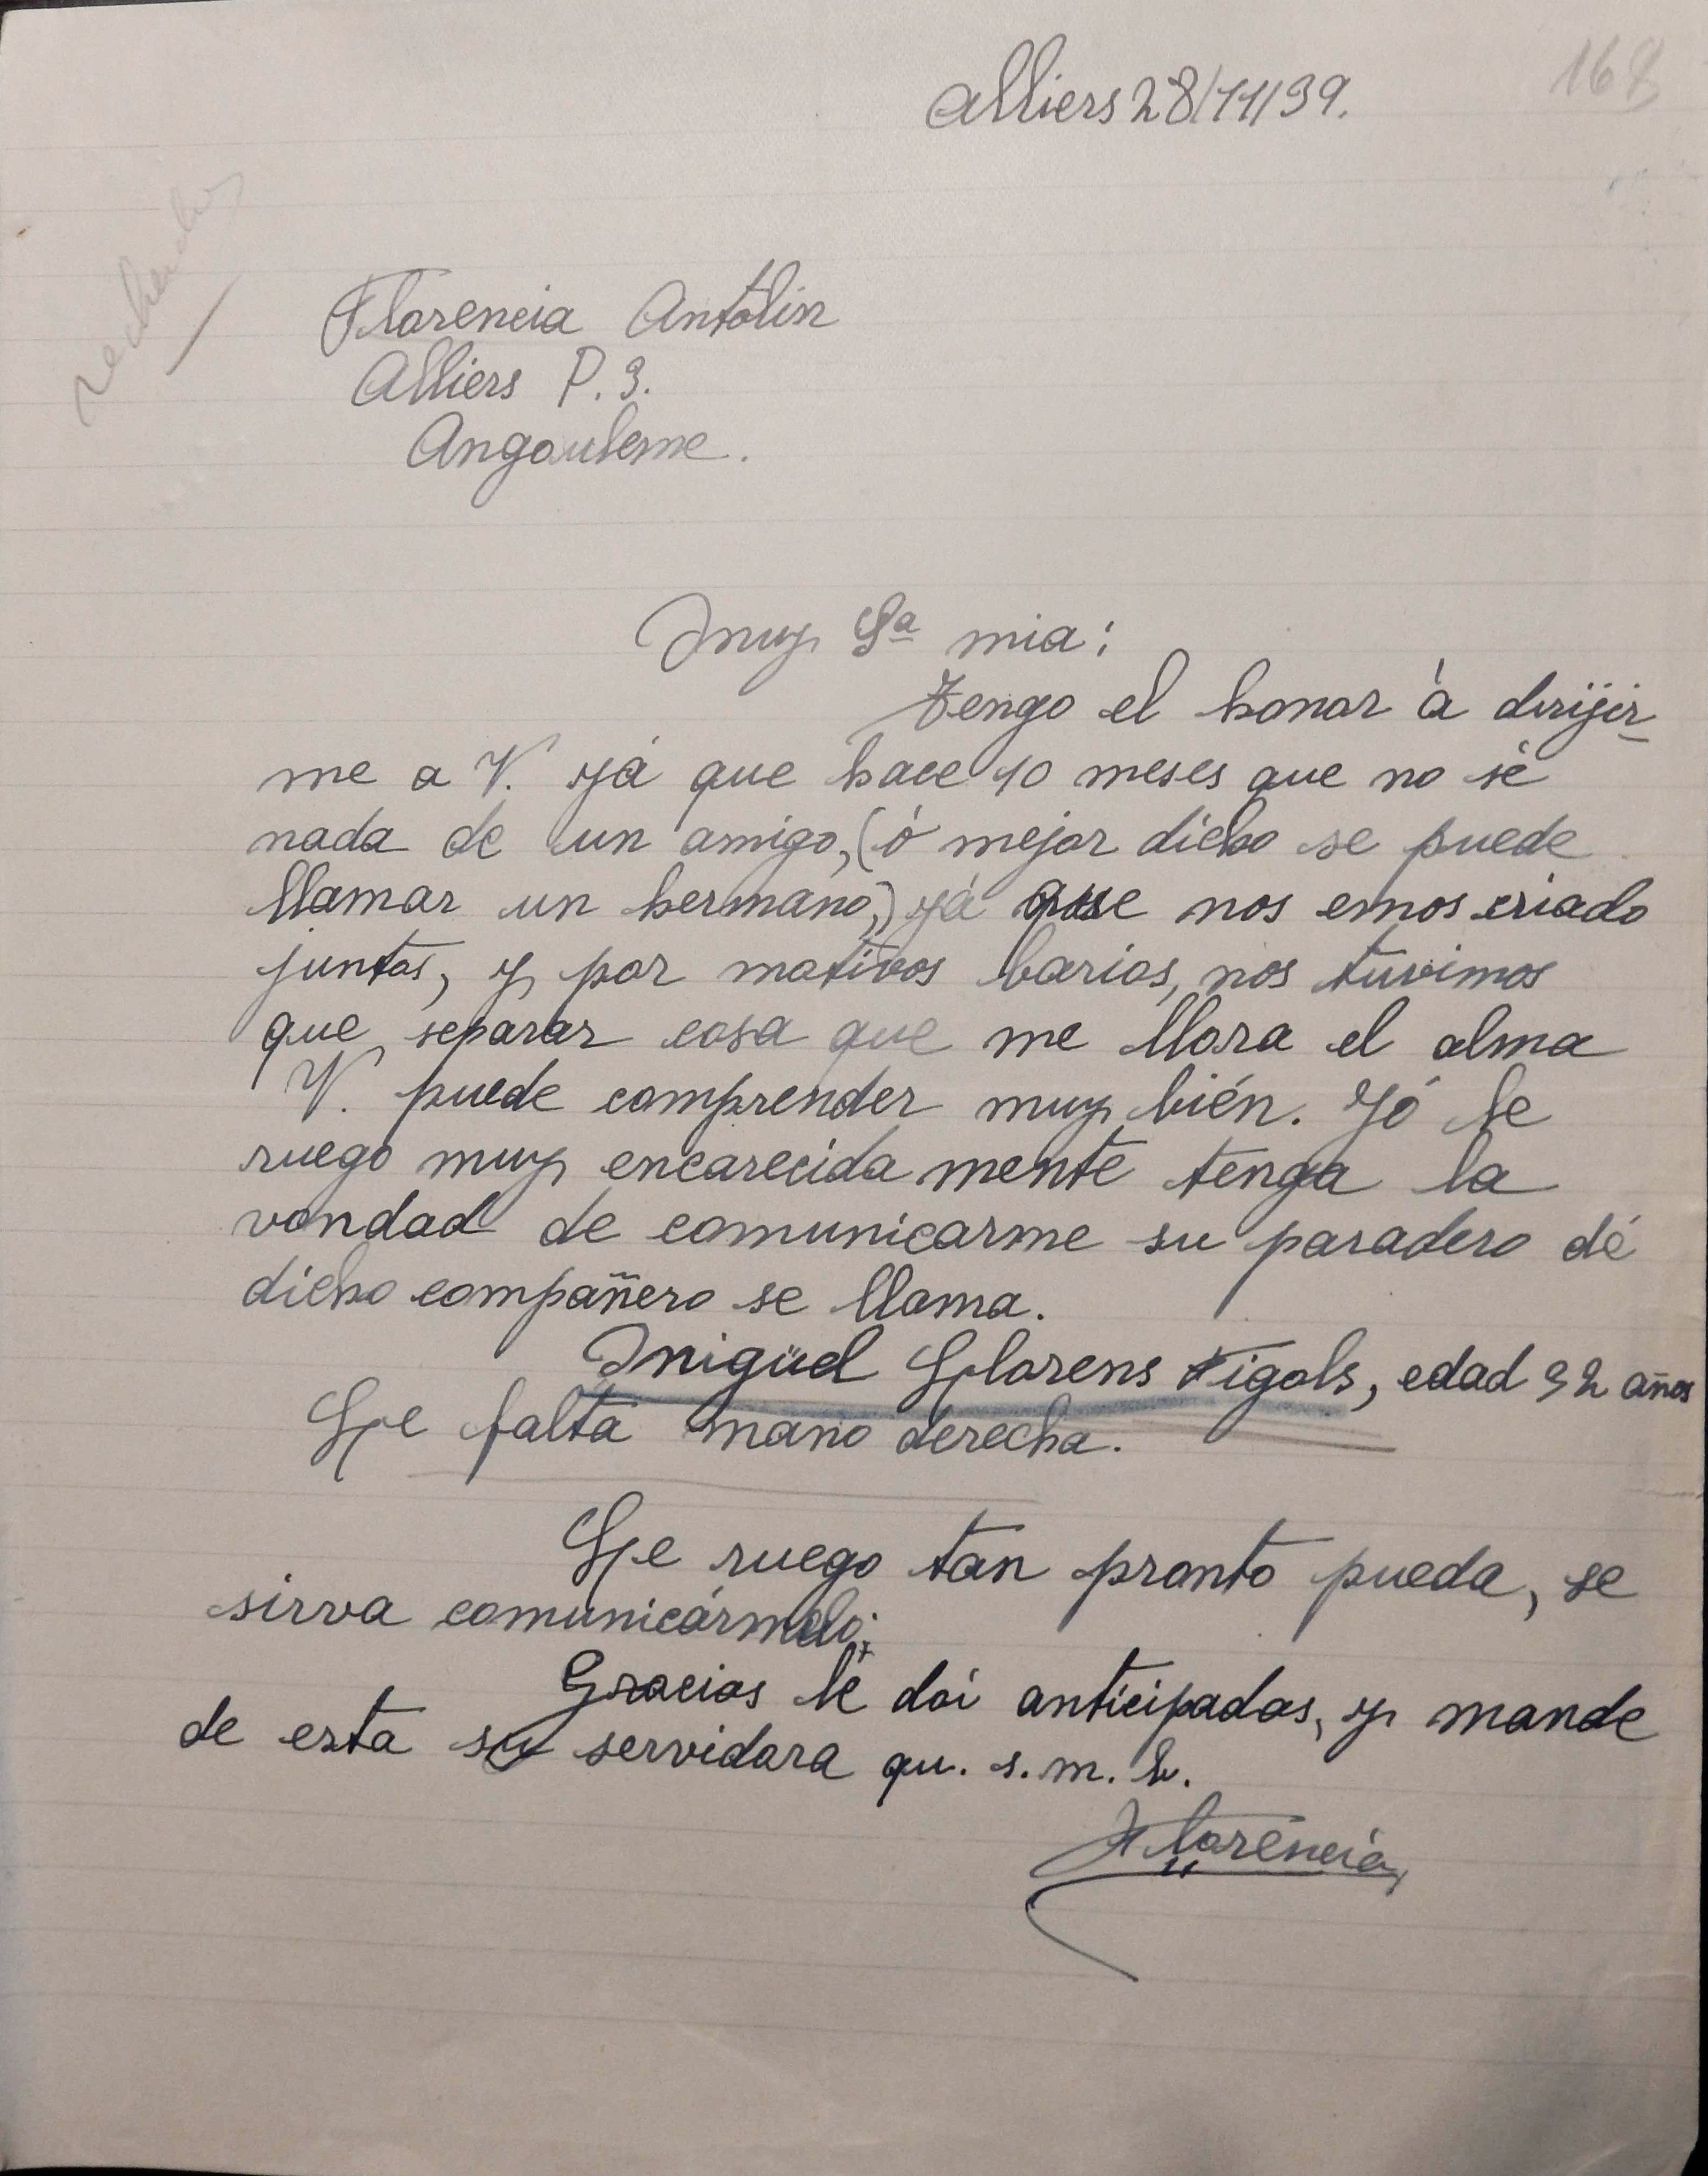 Alliers 28/11/39.
168
Florencia Antolin
Alliers P. 3.
Angouleme.
Muy Sª mia:
Tengo el honor à dirijir-
me a V. yá que hace 10 meses que no sé
nada de un amigo, (ó mejor dicho se puede
llamar un hermano,) yá que nos emos criado
juntos, y por motivos barios, nos tuvimos
que separar cosa que me llora el alma
V. puede comprender muy bién. Yó le
ruego muy encarecida mente tenga la
vondad de comunicarme su paradero dé
dicho compañero se llama.
Migüel Llorens Figols, edad 32 años
Le falta mano derecha.
Le ruego tan pronto pueda, se
sirva comunicármelo;
Gracias le dói anticipadas, y mande
de esta su servidora qu. s. m. b.
Florência